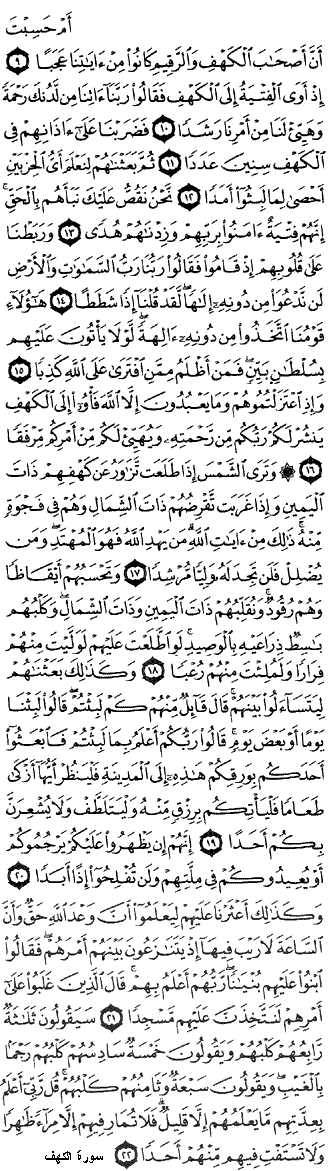 أَمْ حَسِبْتَ
أَنَّ أَصْحَابَ الْكَهْفِ وَالرَّقِيمِ كَانُوا مِنْ ءَايَاتِنَا عَجَبًا ٩
إِذْ أَوَى الْفِتْيَةُ إِلَى الْكَهْفِ فَقَالُوا رَبَّنَا ءَاتِنَا مِن لَّدُنكَ رَحْمَةً
وَهَيِّئْ لَنَا مِنْ أَمْرِنَا رَشَدًا ١٠ فَضَرَبْنَا عَلَىٰ ءَاذَانِهِمْ فِي
الْكَهْفِ سِنِينَ عَدَدًا ١١ ثُمَّ بَعَثْنَاهُمْ لِنَعْلَمَ أَيُّ الْحِزْبَيْنِ
أَحْصَىٰ لِمَا لَبِثُوا أَمَدًا ١٢ نَّحْنُ نَقُصُّ عَلَيْكَ نَبَأَهُم بِالْحَقِّ ۚ
إِنَّهُمْ فِتْيَةٌ ءَامَنُوا بِرَبِّهِمْ وَزِدْنَاهُمْ هُدًى ١٣ وَرَبَطْنَا
عَلَىٰ قُلُوبِهِمْ إِذْ قَامُوا فَقَالُوا رَبُّنَا رَبُّ السَّمَاوَاتِ وَالْأَرْضِ
لَن نَّدْعُوَا مِن دُونِهِ إِلَٰهًا ۖ لَّقَدْ قُلْنَا إِذًا شَطَطًا ١٤ هَٰؤُلَاءِ
قَوْمُنَا اتَّخَذُوا مِن دُونِهِ ءَالِهَةً ۖ لَّوْلَا يَأْتُونَ عَلَيْهِم
بِسُلْطَانٍ بَيِّنٍ ۖ فَمَنْ أَظْلَمُ مِمَّنِ افْتَرَىٰ عَلَى اللَّهِ كَذِبًا ١٥
وَإِذِ اعْتَزَلْتُمُوهُمْ وَمَا يَعْبُدُونَ إِلَّا اللَّهَ فَأْوُوا إِلَى الْكَهْفِ
يَنشُرْ لَكُمْ رَبُّكُم مِّن رَّحْمَتِهِ وَيُهَيِّئْ لَكُم مِّنْ أَمْرِكُم مِّرْفَقًا
١٦ ۞ وَتَرَى الشَّمْسَ إِذَا طَلَعَت تَّزَاوَرُ عَن كَهْفِهِمْ ذَاتَ
الْيَمِينِ وَإِذَا غَرَبَت تَّقْرِضُهُمْ ذَاتَ الشِّمَالِ وَهُمْ فِي فَجْوَةٍ
مِّنْهُ ۚ ذَٰلِكَ مِنْ ءَايَاتِ اللَّهِ ۗ مَن يَهْدِ اللَّهُ فَهُوَ الْمُهْتَدِ ۖ وَمَن
يُضْلِلْ فَلَن تَجِدَ لَهُ وَلِيًّا مُّرْشِدًا ١٧ وَتَحْسَبُهُمْ أَيْقَاظًا
وَهُمْ رُقُودٌ ۚ وَنُقَلِّبُهُمْ ذَاتَ الْيَمِينِ وَذَاتَ الشِّمَالِ ۖ وَكَلْبُهُم
بَاسِطٌ ذِرَاعَيْهِ بِالْوَصِيدِ ۚ لَوِ اطَّلَعْتَ عَلَيْهِمْ لَوَلَّيْتَ مِنْهُمْ
فِرَارًا وَلَمُلِئْتَ مِنْهُمْ رُعْبًا ١٨ وَكَذَٰلِكَ بَعَثْنَاهُمْ
لِيَتَسَاءَلُوا بَيْنَهُمْ ۚ قَالَ قَائِلٌ مِّنْهُمْ كَمْ لَبِثْتُمْ ۖ قَالُوا لَبِثْنَا
يَوْمًا أَوْ بَعْضَ يَوْمٍ ۚ قَالُوا رَبُّكُمْ أَعْلَمُ بِمَا لَبِثْتُمْ فَابْعَثُوا
أَحَدَكُم بِوَرِقِكُمْ هَٰذِهِ إِلَى الْمَدِينَةِ فَلْيَنظُرْ أَيُّهَا أَزْكَىٰ
طَعَامًا فَلْيَأْتِكُم بِرِزْقٍ مِّنْهُ وَلْيَتَلَطَّفْ وَلَا يُشْعِرَنَّ
بِكُمْ أَحَدًا ١٩ إِنَّهُمْ إِن يَظْهَرُوا عَلَيْكُمْ يَرْجُمُوكُمْ
أَوْ يُعِيدُوكُمْ فِي مِلَّتِهِمْ وَلَن تُفْلِحُوا إِذًا أَبَدًا ٢٠
وَكَذَٰلِكَ أَعْثَرْنَا عَلَيْهِمْ لِيَعْلَمُوا أَنَّ وَعْدَ اللَّهِ حَقٌّ وَأَنَّ
السَّاعَةَ لَا رَيْبَ فِيهَا إِذْ يَتَنَازَعُونَ بَيْنَهُمْ أَمْرَهُمْ ۖ فَقَالُوا
ابْنُوا عَلَيْهِم بُنْيَانًا ۖ رَّبُّهُمْ أَعْلَمُ بِهِمْ ۚ قَالَ الَّذِينَ غَلَبُوا عَلَىٰ
أَمْرِهِمْ لَنَتَّخِذَنَّ عَلَيْهِم مَّسْجِدًا ٢١ سَيَقُولُونَ ثَلَاثَةٌ
رَّابِعُهُمْ كَلْبُهُمْ وَيَقُولُونَ خَمْسَةٌ سَادِسُهُمْ كَلْبُهُمْ رَجْمًا
بِالْغَيْبِ ۖ وَيَقُولُونَ سَبْعَةٌ وَثَامِنُهُمْ كَلْبُهُمْ ۚ قُل رَّبِّي أَعْلَمُ
بِعِدَّتِهِم مَّا يَعْلَمُهُمْ إِلَّا قَلِيلٌ ۗ فَلَا تُمَارِ فِيهِمْ إِلَّا مِرَاءً ظَاهِرًا
وَلَا تَسْتَفْتِ فِيهِم مِّنْهُمْ أَحَدًا ٢٢ سورة الكهف